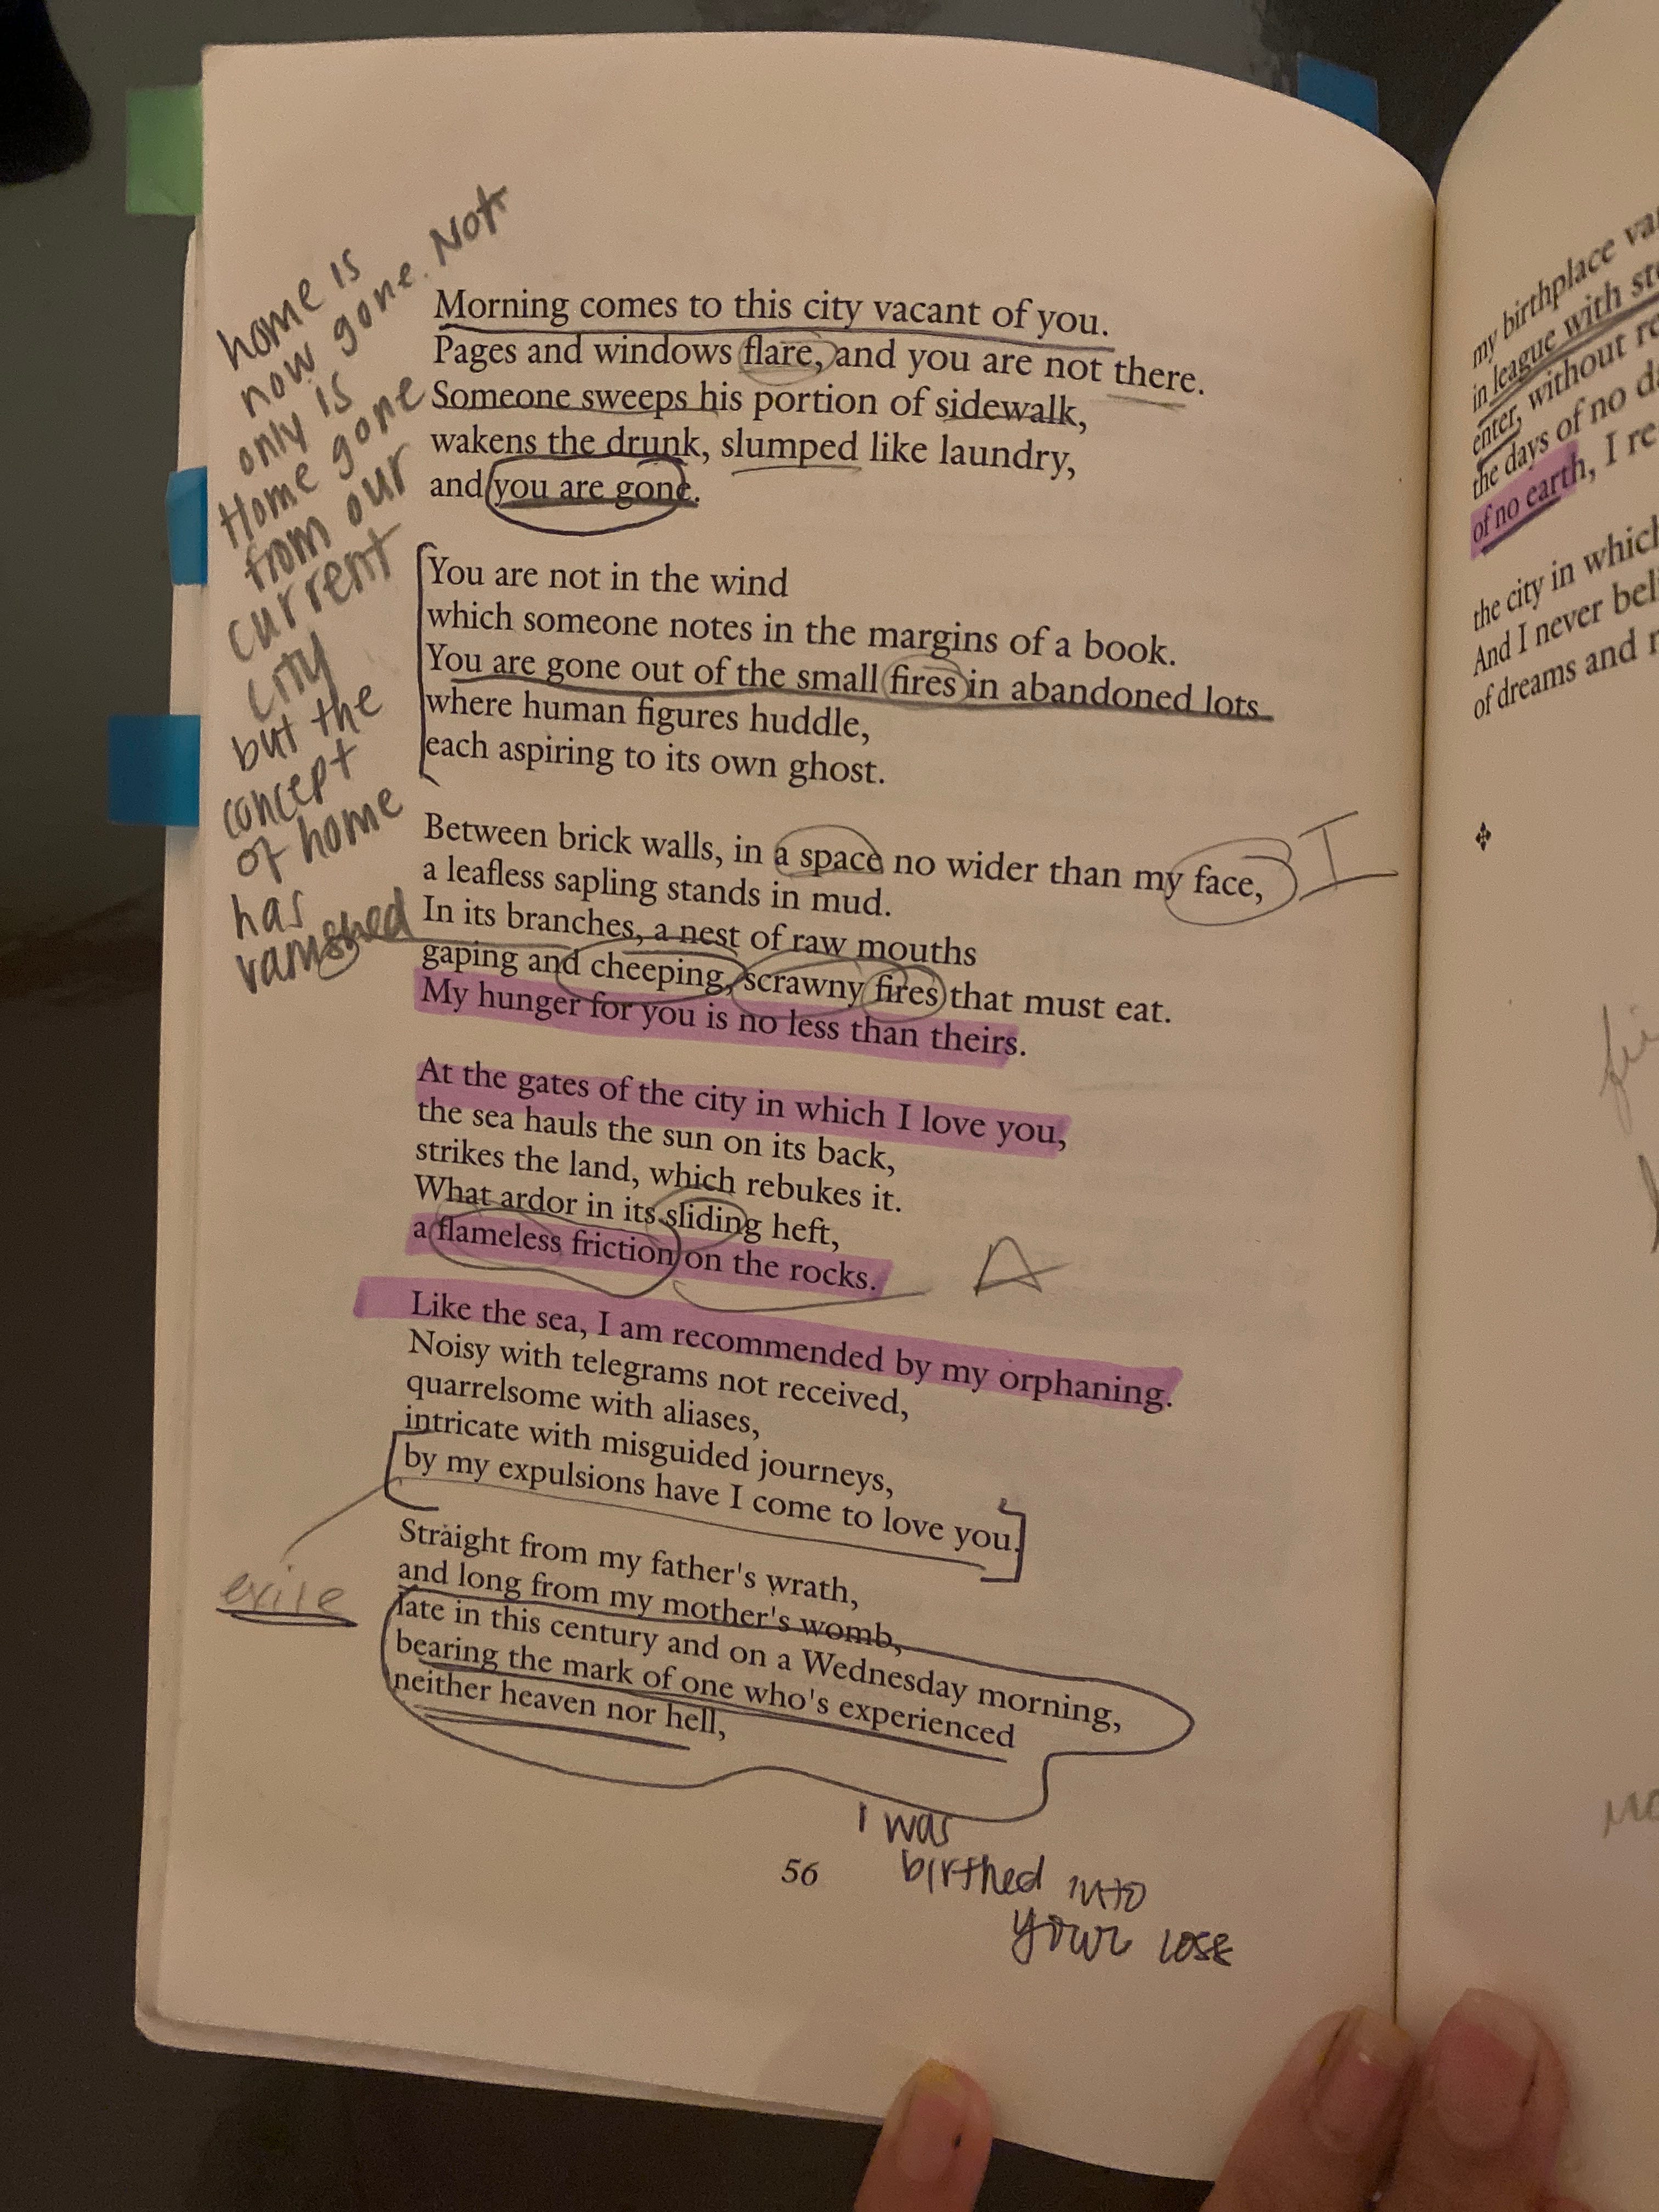 home is
now gone. Not
only is
Home gone
from our
current
city
but the
concept
of home
has
vanished
Morning comes to this city vacant of you.
Pages and windows flare, and you are not there.
Someone sweeps his portion of sidewalk,
wakens the drunk, slumped like laundry,
and you are gone.
You are not in the wind
which someone notes in the margins of a book.
You are gone out of the small fires in abandoned lots
where human figures huddle,
each aspiring to its own ghost.
Between brick walls, in a space no wider than my face,
I
a leafless sapling stands in mud.
In its branches, a nest of raw mouths
gaping and cheeping, scrawny fires that must eat.
My hunger for you is no less than theirs.
At the gates of the city in which I love you,
the sea hauls the sun on its back,
strikes the land, which rebukes it.
What ardor in its sliding heft,
a flameless friction on the rocks.
A
Like the sea, I am recommended by my orphaning.
Noisy with telegrams not received,
quarrelsome with aliases,
intricate with misguided journeys,
by my expulsions have I come to love you.
exile
Straight from my father's wrath,
and long from my mother's womb,
late in this century and on a Wednesday morning,
bearing the mark of one who's experienced
neither heaven nor hell,
I was
birthed into
your loss
56
my birthplace
in league with
enter, without
the days of no
of no earth, I
the city in which
And I never
of dreams and